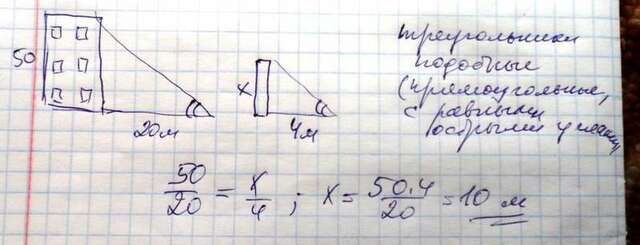 50
20м
x
4м
треугольники
подобные
(прямоугольные,
с равными
острыми углами)
50/20 = x/4 ; x = 50·4/20 = 10 м